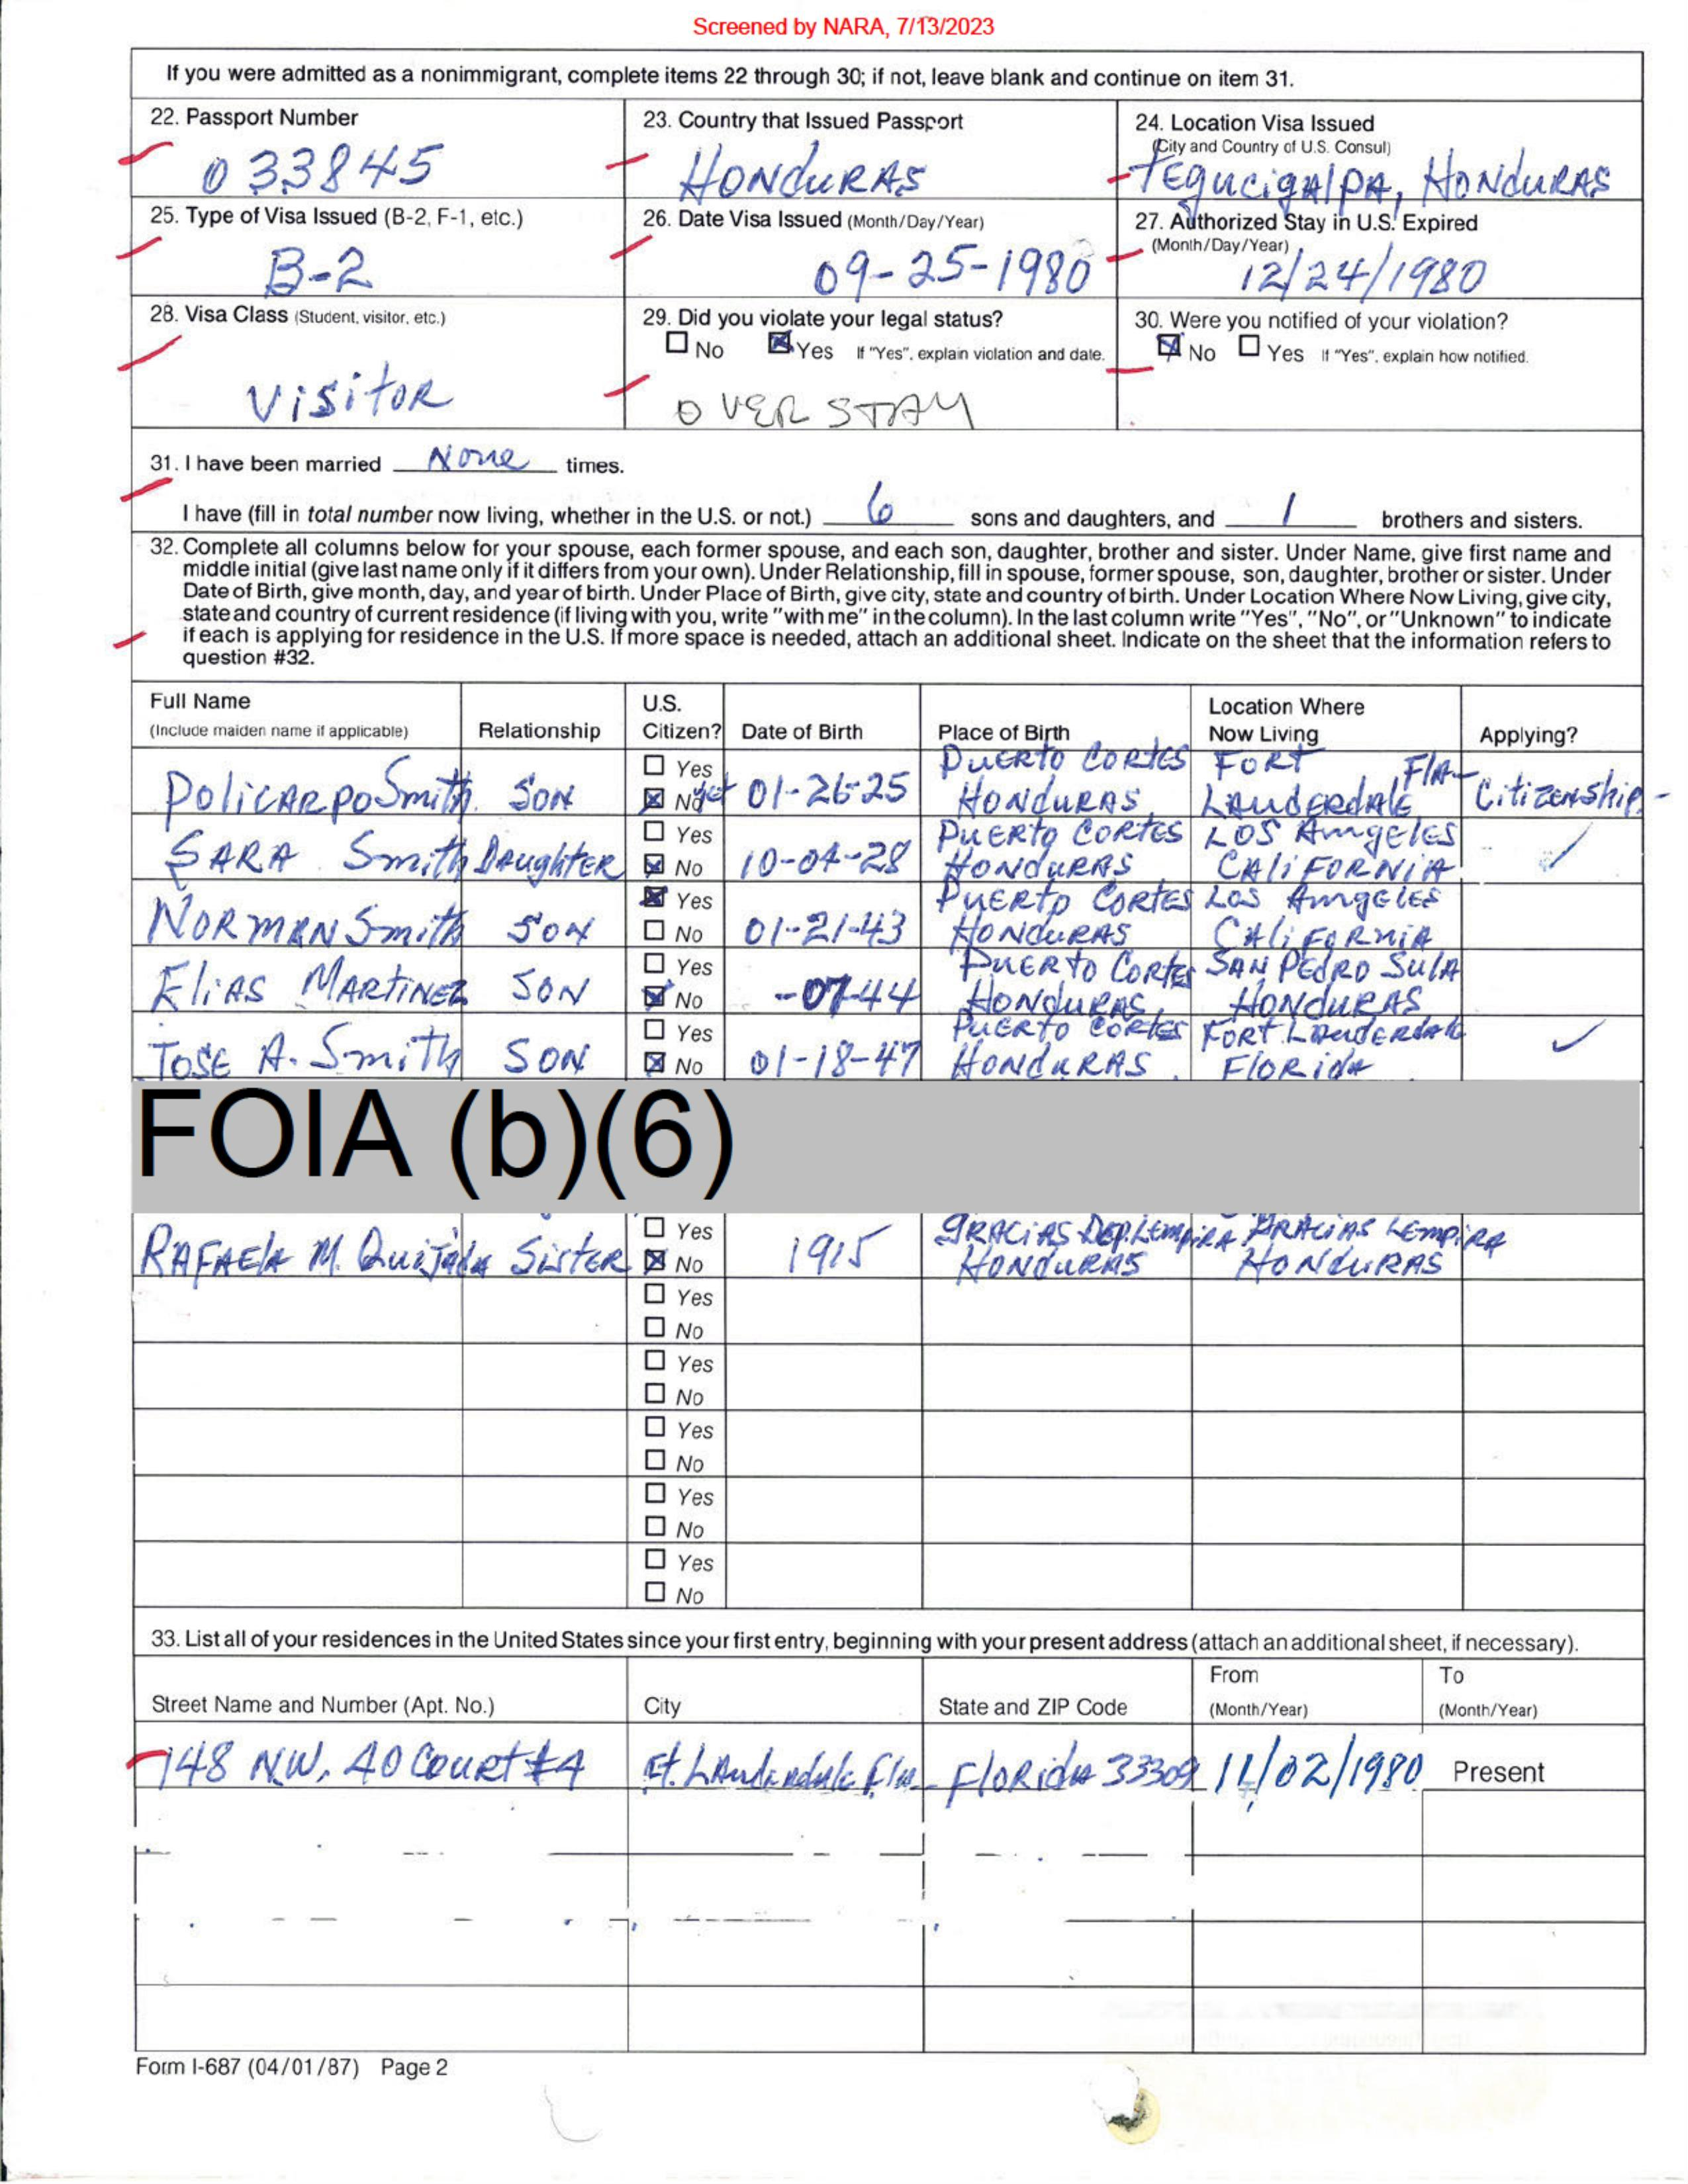 Screened by NARA, 7/13/2023
If you were admitted as a nonimmigrant, complete items 22 through 30; if not, leave blank and continue on item 31.
22. Passport Number
033845
23. Country that Issued Passport
HONDURAS
24. Location Visa Issued
(City and Country of U.S. Consul)
TEgucigAlPA, HONDURAS
25. Type of Visa Issued (B-2, F-1, etc.)
B-2
26. Date Visa Issued (Month/Day/Year)
09-25-1980
27. Authorized Stay in U.S. Expired
(Month/Day/Year)
12/24/1980
28. Visa Class (Student, visitor, etc.)
VisitoR
29. Did you violate your legal status?
No Yes If "Yes", explain violation and date.
OVER STAY
30. Were you notified of your violation?
No Yes If "Yes", explain how notified.
31. I have been married None times.
I have (fill in total number now living, whether in the U.S. or not.) 6 sons and daughters, and 1 brothers and sisters.
32. Complete all columns below for your spouse, each former spouse, and each son, daughter, brother and sister. Under Name, give first name and
middle initial (give last name only if it differs from your own). Under Relationship, fill in spouse, former spouse, son, daughter, brother or sister. Under
Date of Birth, give month, day, and year of birth. Under Place of Birth, give city, state and country of birth. Under Location Where Now Living, give city,
state and country of current residence (if living with you, write "with me" in the column). In the last column write "Yes", "No", or "Unknown" to indicate
if each is applying for residence in the U.S. If more space is needed, attach an additional sheet. Indicate on the sheet that the information refers to
question #32.
Full Name
(Include maiden name if applicable)
Relationship
U.S.
Citizen?
Date of Birth
Place of Birth
Location Where
Now Living
Applying?
PoliCARpo Smith SON
Yes
No yet
01-26-25
PuERto CORtES
HONDURAS
FORt
LAUDERdAlE FlA
CitizENship
SARA Smith DAughtER
Yes
No
10-04-28
PuERto CORTES
HONDURAS
LOS AmgElES
CAliFORNiA
NORMAN Smith SON
Yes
No
01-21-43
PuERto CORTES
HONDURAS
LOS AmgElES
CAliFORNiA
EliAS MARtiNEz SON
Yes
No
-07-44
PuERto CORtES
HONDURAS
SAN PEdRO SulA
HONDURAS
JOSE A. Smith SON
Yes
No
01-18-47
PuERto CORtES
HONDURAS
FORt LAudERdAlE
FlORidA
FOIA (b)(6)
RAFAElA M. QuijAdA SistER
Yes
No
1915
gRACiAS Dep. LEmpiRA
HONDURAS
gRACiAS LEmpiRA
HONDURAS
Yes
No
Yes
No
Yes
No
Yes
No
Yes
No
33. List all of your residences in the United States since your first entry, beginning with your present address (attach an additional sheet, if necessary).
Street Name and Number (Apt. No.)
City
State and ZIP Code
From
(Month/Year)
To
(Month/Year)
748 N.W. 40 CouRt #4
Ft. LAudERdAlE FlA
FloRidA 33309
11/02/1980
Present
Form I-687 (04/01/87) Page 2